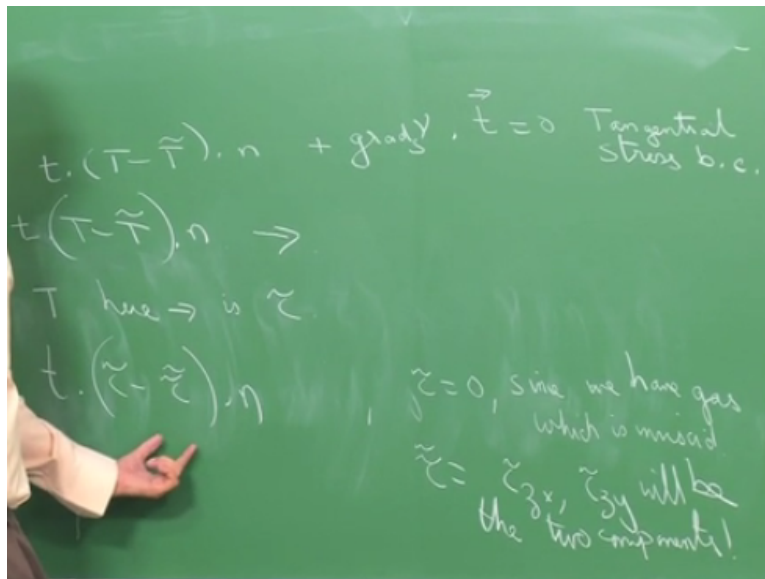 t.(T-T̃).n + gradγ.t⃗=0 Tangential
stress b.c.
t.(T-T̃).n →
T here → is τ̃
t.(τ̃-τ̃̃).n , τ̃=0, since we have gas
which is inviscid
τ̃̃= τ̃zx, τ̃zy will be
the two components!